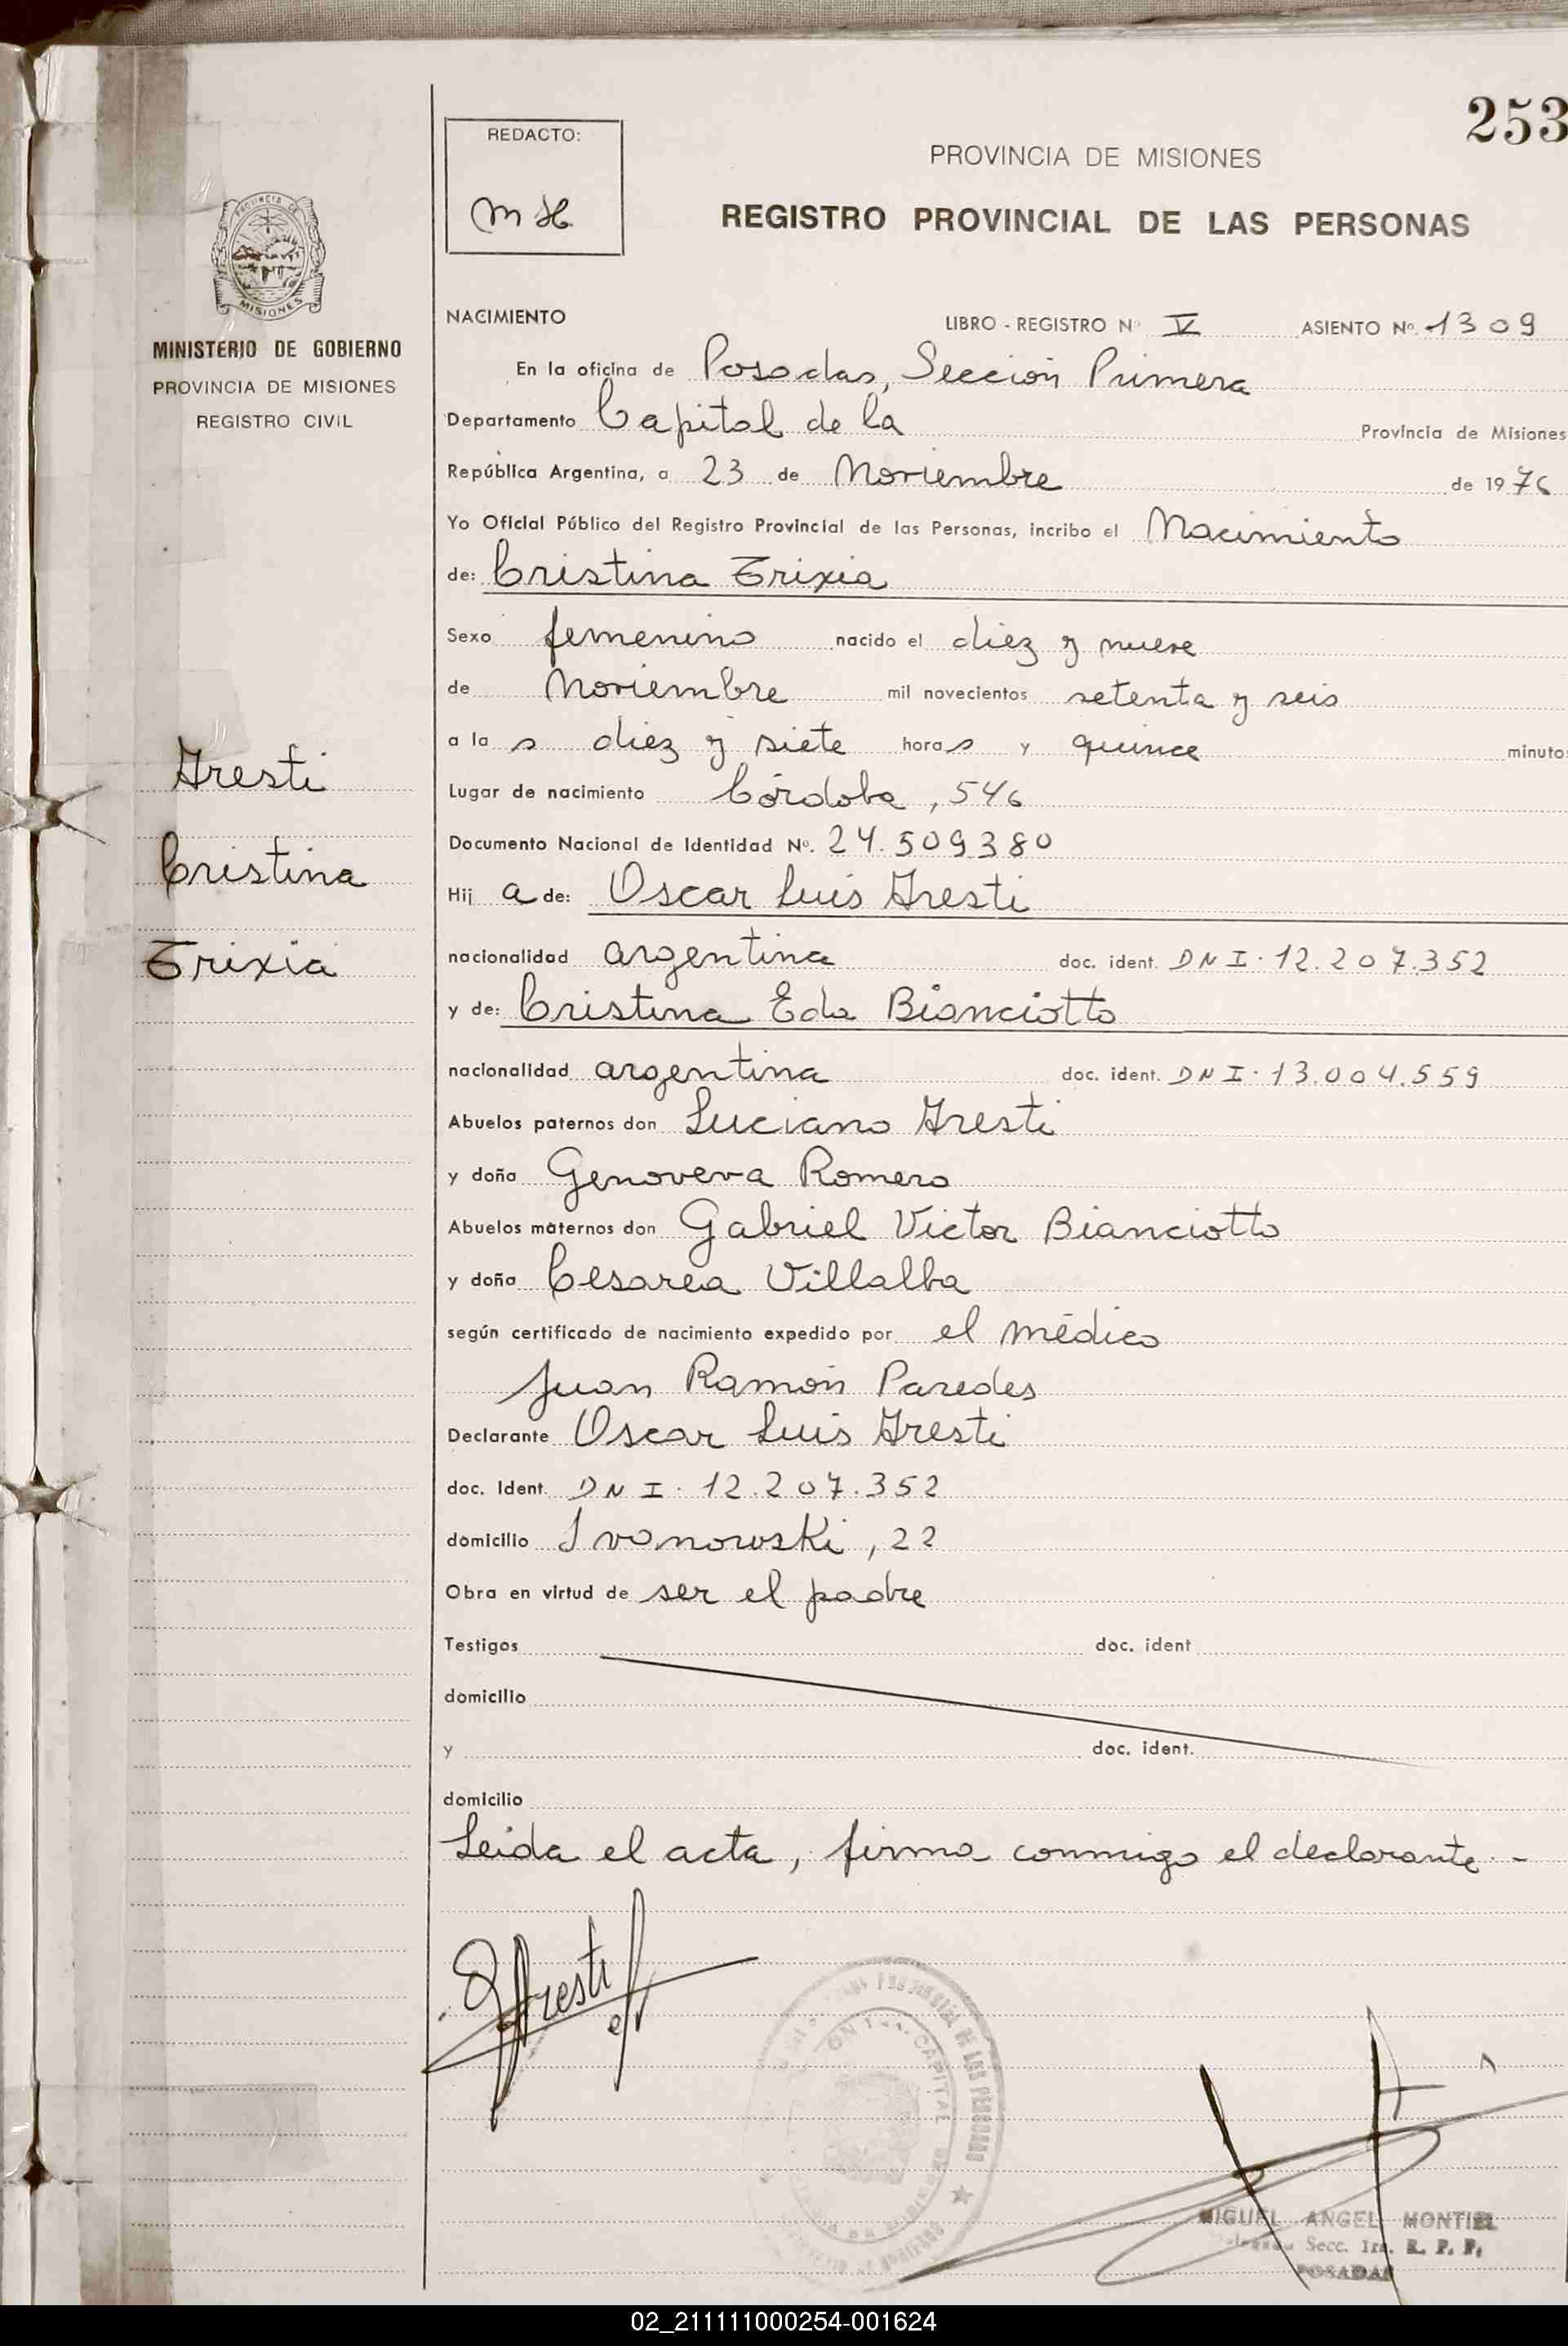 253
REDACTO:
MH
PROVINCIA DE MISIONES
REGISTRO PROVINCIAL DE LAS PERSONAS
PROVINCIA DE
MISIONES
MINISTERIO DE GOBIERNO
PROVINCIA DE MISIONES
REGISTRO CIVIL
Gresti
Cristina
Trixia
NACIMIENTO LIBRO - REGISTRO Nº V ASIENTO Nº. 1309
En la oficina de Posadas, Sección Primera
Departamento Capital de la Provincia de Misiones
República Argentina, a 23 de Noviembre de 1976
Yo Oficial Público del Registro Provincial de las Personas, incribo el Nacimiento
de: Cristina Trixia
Sexo femenino nacido el diez y nueve
de Noviembre mil novecientos setenta y seis
a la s diez y siete horas y quince minuto
Lugar de nacimiento Córdoba, 546
Documento Nacional de Identidad Nº. 24.509380
Hij a de: Oscar Luis Gresti
nacionalidad argentina doc. ident. DNI. 12.207.352
y de: Cristina Eda Bianciotto
nacionalidad argentina doc. ident. DNI. 13.004.559
Abuelos paternos don Luciano Gresti
y doña Genoveva Romero
Abuelos maternos don Gabriel Victor Bianciotto
y doña Cesarea Villalba
según certificado de nacimiento expedido por el médico
Juan Ramón Paredes
Declarante Oscar Luis Gresti
doc. Ident. DNI. 12.207.352
domicilio Ivanowski, 22
Obra en virtud de ser el padre
Testigos doc. ident
domicilio
y doc. ident.
domicilio
Leida el acta, firma conmigo el declarante.-
MIGUEL ANGEL MONTIEL
Secc. 1ra. R. P. P.
POSADAS
02_211111000254-001624